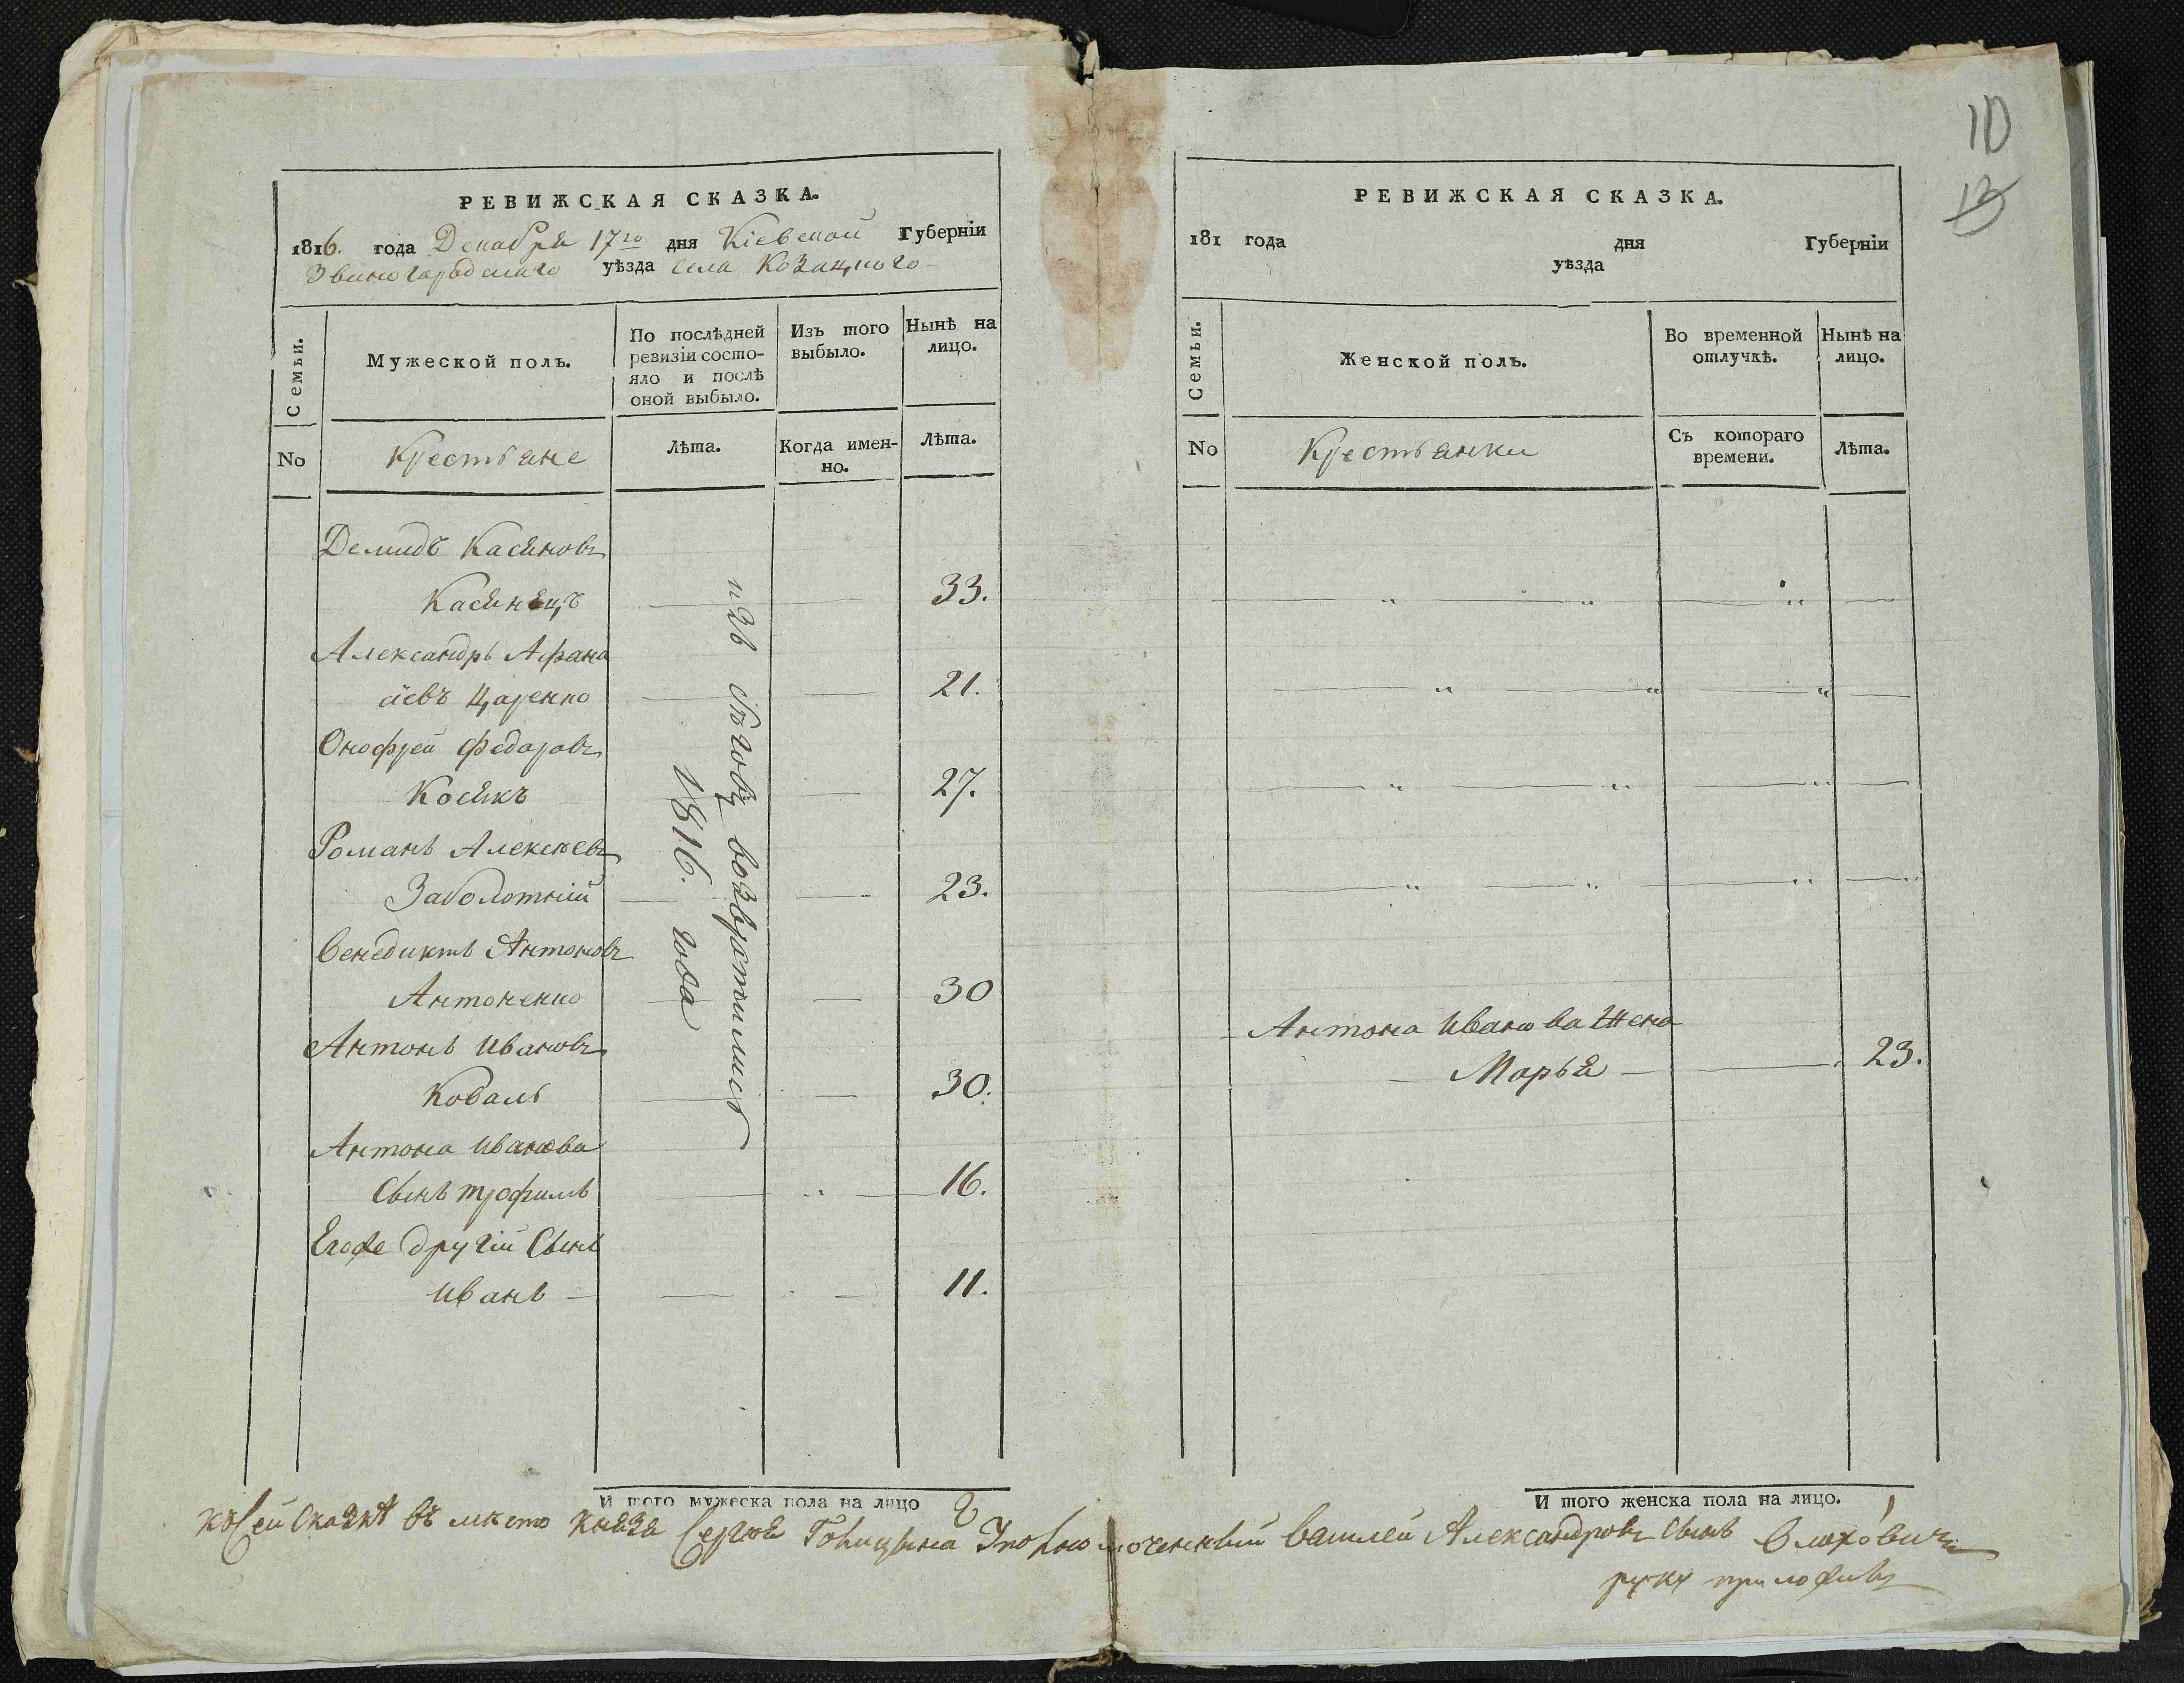 РЕВИЖСКАЯ СКАЗКА.
1816. года Декабря 17го дня Кіевской Губерніи
Звиногородскаго уѣзда села Козацкого
Семьи.
Мужеской полъ.
По послѣдней
ревизіи состо-
яло и послѣ
оной выбыло.
Изъ того
выбыло.
Нынѣ на
лицо.
No
Крестьяне
Лѣта.
Когда имен-
но.
Лѣта.
Демидъ Касяновъ
Касянецъ 33.
Александръ Афана
сіевъ Царенко 21.
Онофрей Федоровъ
Косякъ 27.
Романъ Алексѣевъ
Заболотній 23.
Венедиктъ Антоновъ
Антоненко 30
Антонъ Ивановъ
Коваль 30.
Антона Иванова
Сынъ трофимъ 16.
Егоже другій Сынъ
Иванъ 11.
изъ бѣговъ возвратились
1816. года
И того мужеска пола на лицо
10
13
РЕВИЖСКАЯ СКАЗКА.
181 года дня Губерніи
уѣзда
Семьи.
Женской полъ.
Во временной
отлучкѣ.
Нынѣ на
лицо.
No
Крестьянки
Съ котораго
времени.
Лѣта.
Антона Иванова Жена
Марья 23.
И того женска пола на лицо. 1
къ сей сказкѣ въ мѣсто князя Сергѣя Голицына Уполномоченный Василей Александровъ сынъ
руку приложивъ